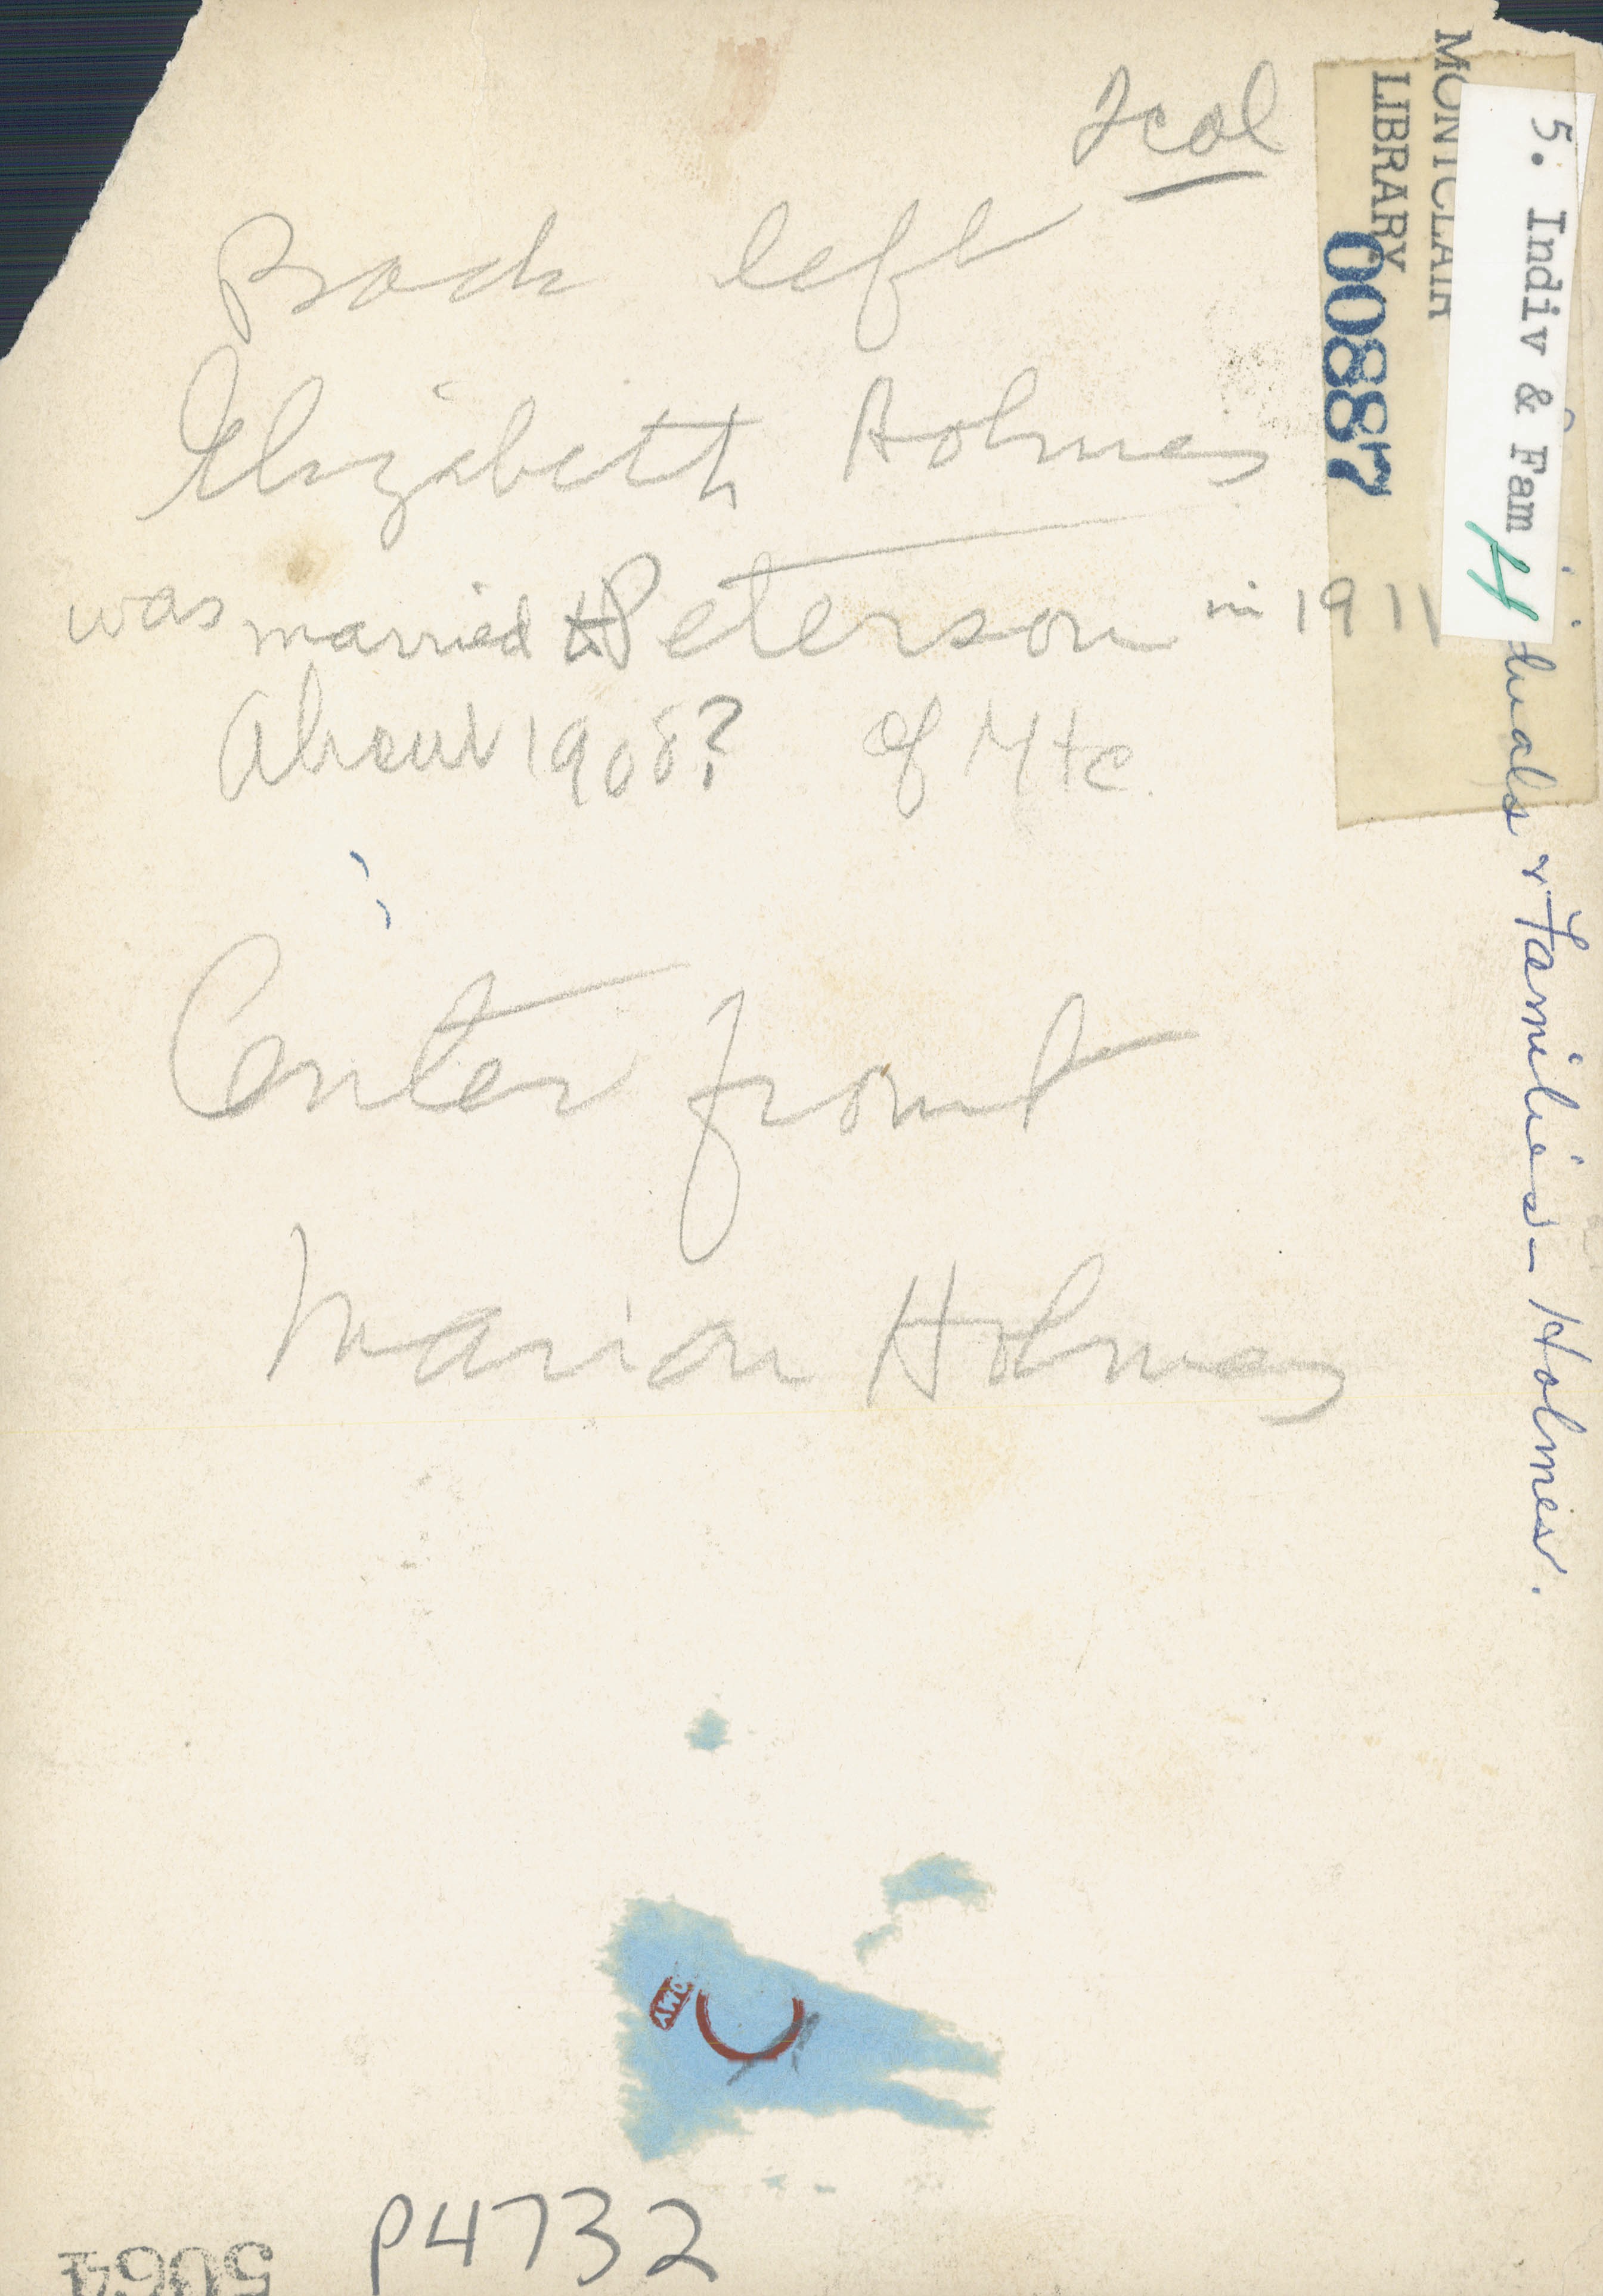 2 col
Back left
Elizabeth Holmes
was married to Peterson in 1911
About 1908? of Mtc.
Center front
Marion Holmes
P4732
5064
MONTCLAIR
LIBRARY
00887
5. Indiv & Fam H
duals & Families - Holmes.